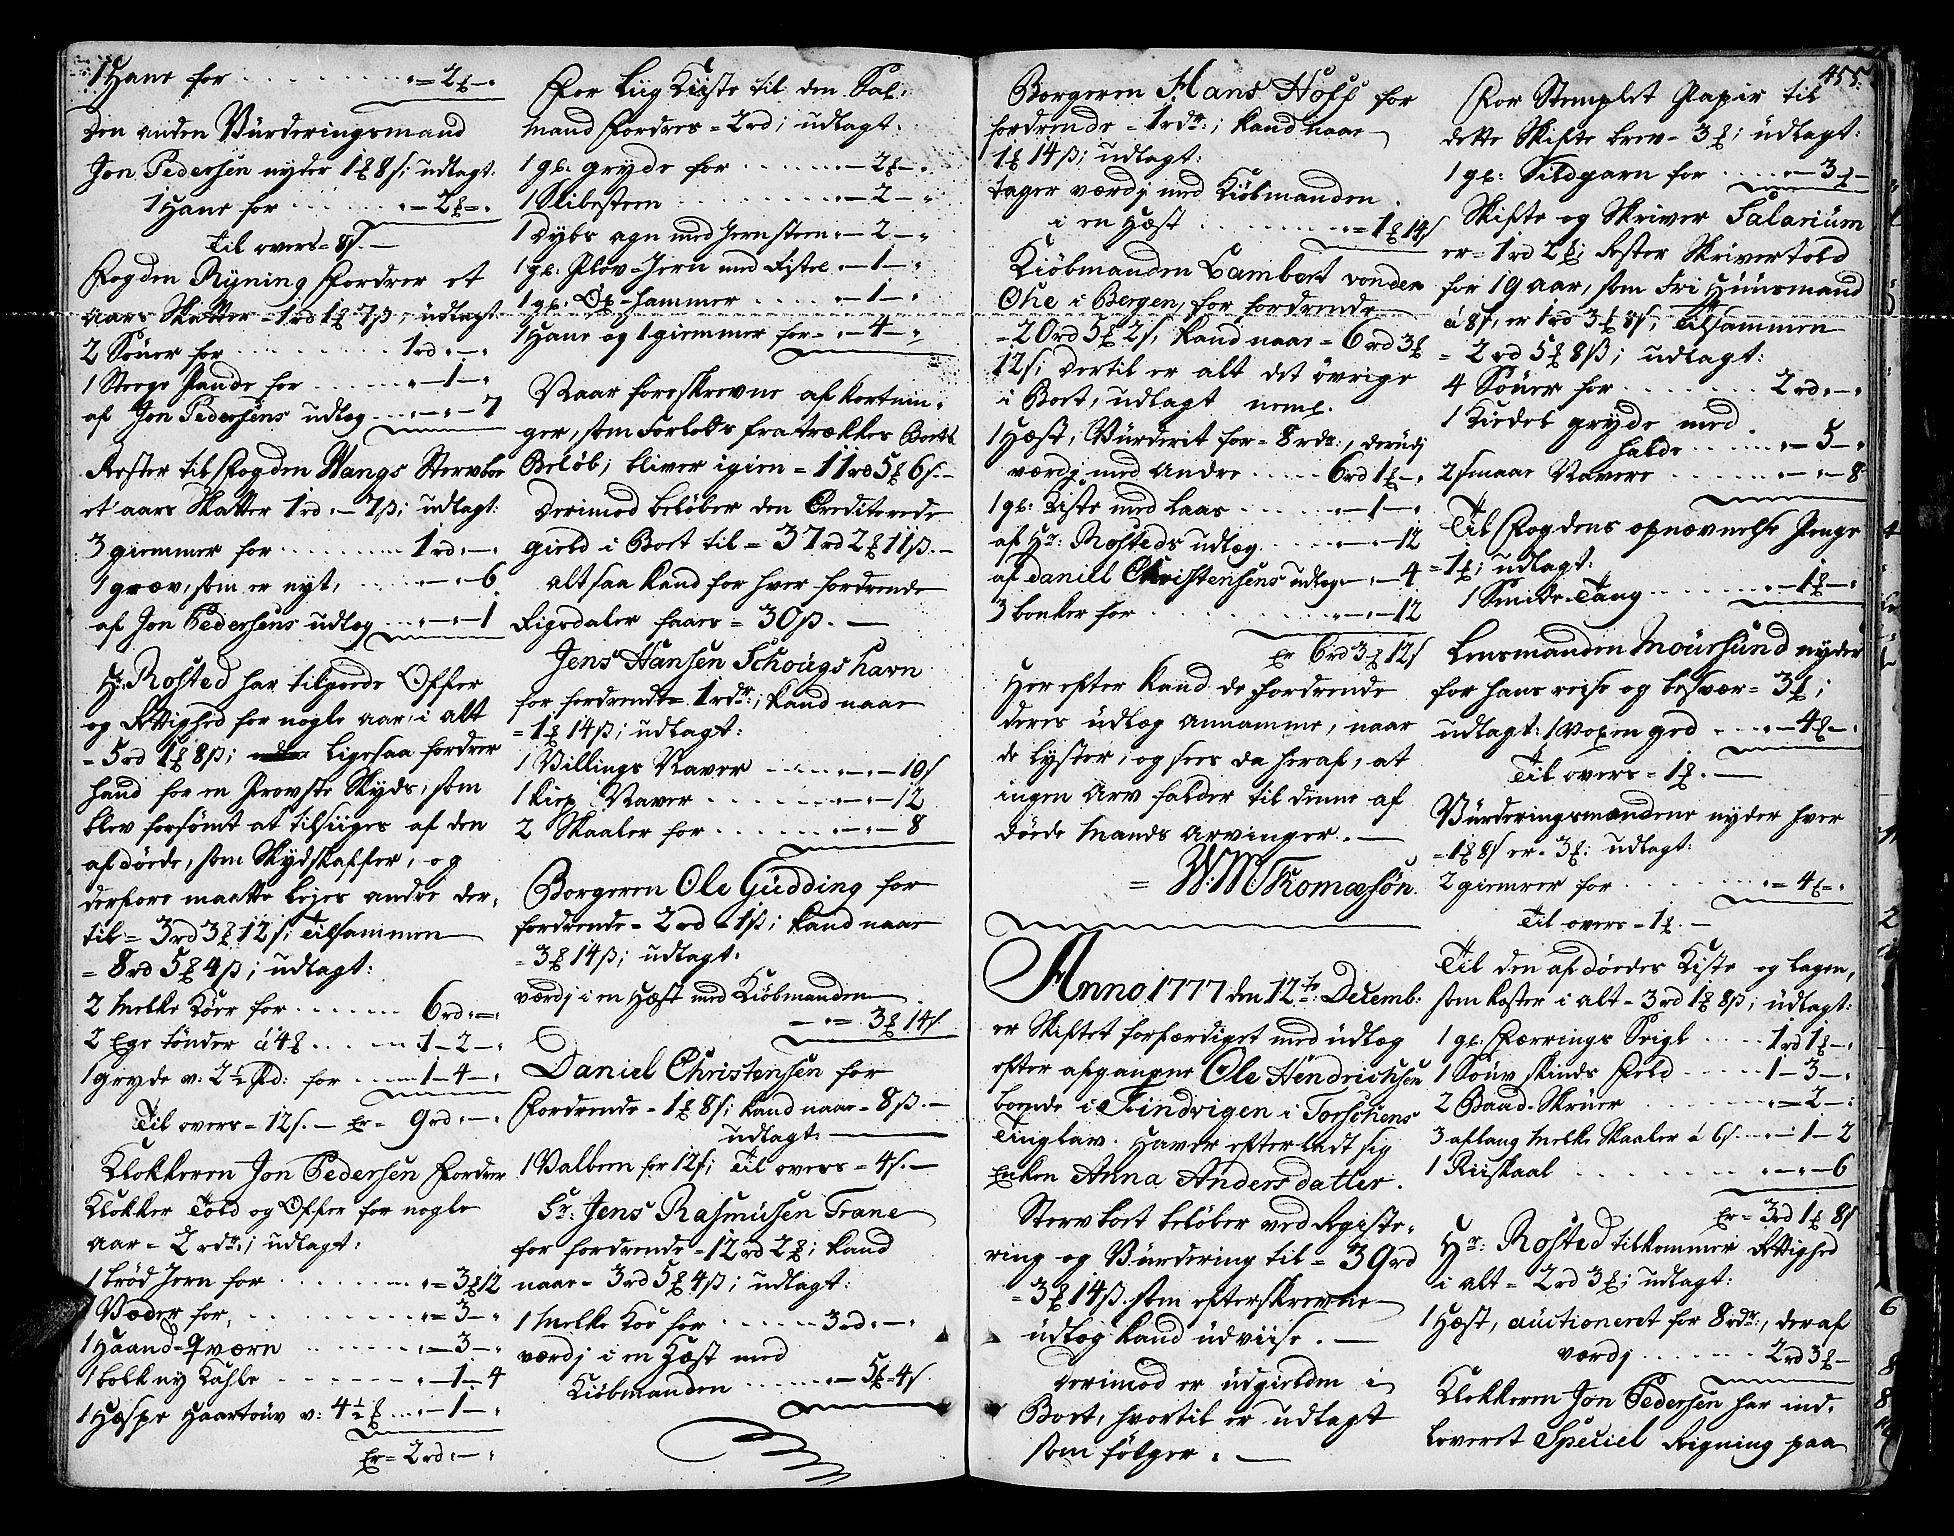 1 Hane for . . . . . . . . . „ = 2 ₰ – „
Den anden Vürderingsmand
Jon Pedersen nyder 1₰ 8ſ; udlagt.
1 Hane for . . . . . . „ = 2₰ – „
Til overs = 8ſ. —
Fogden Rÿning Fordrer et
Aars Skatter = 1rd 1₰ 7ß; üdlagt:
2 Souer for . . . . . . 1rd „ – „
1 Steege Pande for . . . . . „ – 1 – „
af Jon Pedersens udlæg . . . „ – „ – 7
Rester til Fogden Wangs Stervboe
et aars Skatter 1rd „ – 7ß; udlagt:
3 giemmer for . . . . . . 1rd „ – „
1 græv, som er nyt, . . . . „ – „ – 6
af Jon Pedersens udlæg . . . „ – „ – 1
Hr: Rosted har tilgode Offer
og Rettighed for nogle aar, i alt
= 5rd 1₰ 8ß; Ligesaa fordrer
hand for en Provste Skyds, som
blev forsömt at tilsiiges af den
afdöede, som Skydskaffer, og
derfore maatte lejes andre der-
til = 3rd 3₰ 12ſ; Tilsammen
= 8rd 5₰ 4ß; udlagt:
2 Melke Köer for . . . . . . 6rd „ – „
2 Ege Tönder á 4₰ . . . . . . 1 – 2 – „
1 gryde v: 2½ Pd: for . . . . 1 – 4 – „
Til overs = 12ſ. — Er = 9rd „ – „
Klokkeren Jon Pedersen Fordrer
Klokker Told og Offer for nogle
aar = 2 rdr; udlagt:
1 bröd Jern for . . . . . . . „ = 3₰ 12
1 Væder for, . . . . . . . . „ = 3 – „
1 Haand-Qværn . . . . . . „ – 3 – „
1 bolk ny Kahle . . . . . . „ – 1 – 4
1 Hespe Haartouv v: 4½ ₰ . . . „ – 1 – „
Er = 2rd „ – „
For Liig Kiiste til den Sal:
Mand Fordres = 2rd; udlagt:
1 gl: gryde for . . . . . . „ – 2₰ – „
1 Slibesteen . . . . . . . „ – 2 – „
1 Dybs agn med Jernsteen „ – 2 – „
1 gl: Plov-Jern med Fistel „ – 1 – „
1 gl: Öx-hammer . . . . . „ – 1 – „
1 Hane og 1 giemmer for = „ – 4 – „
Naar foreskrevne afkortnin-
ger, som forlods fratrækkes Boets
Beløb; bliver igien = 11rd 5₰ 6ſ. –
Derimod beløber den Crediterede
gield i Boet til = 37rd 2₰ 11ß. –
alt saa kand for hver fordrende
Rigsdaler faaes = 30ß. —
Jens Hansen Schougshavn
for fordrende = 1rdr:; kand naae
= 1₰ 14ß; udlagt:
1 Villings Naver . . . . . „ – „ – 10ſ
1 Naver . . . . . . . „ – „ – 12
2 Skaaler for . . . . . . „ – „ – 8
Borgeren Ole Gudding for
fordrende = 2rd = 1ß; kand naae
= 3₰ 14ß; udlagt:
værdj i en Hæst med Kiöbmanden
– „ = 3₰ 14ſ.
Daniel Christensen for
Fordrende = 1₰ 8ſ; kand naae = 8ß. –
udlagt: —
1 Valbem for 12ſ; Til overs = 4ſ. —
Sr: Jens Rasmusen Trane
for fordrende = 12rd 2₰; kand
naae = 3rd 5₰ 4ß; udlagt:
1 Melke Koe for . . . . . . 3rd „ – „
værdj i en Hæst med
Kiöbmanden . . . . . . „ – 5₰ = 4ſ.
Borgeren Hans Hoff for
fordrende = 1rdr:; kand naae
1₰ 14ß; udlagt:
tager værdj med Kiöbmanden
i en Hæst . . . . . . . . „ = 1₰ 14ſ
Kiöbmanden Lambert von der
Ohe i Bergen, for fordrende
= 20rd 5₰ 2ſ, kand naae = 6rd 3₰
12ſ; Dertil er alt det övrige
i Boet, udlagt neml.
1 Hæst, Vürderit for = 8rdr:, derudj
værdj med Andre . . . . . 6rd 1₰ – „
1 gl: Kiste med Laas . . . . „ – 1 – „
af Hr: Rosteds udlæg . . . . „ – „ – 12
af Daniel Christensens udlæg „ – „ – 4
3 bonker for . . . . . . . „ – „ – 12
Er 6rd 3₰ 12ſ
Her efter kand de Fordrende
deres üdlæg annamme, naar
de lyster, og sees da heraf, at
ingen Arv falder til denne af
döede Mands Arvinger. —
= W: M: Thomæsøn.
Anno 1777 den 12te Decemb:
er Skiftet forfærdiget med udlæg
efter afgangne Ole Hendrichsen
boende i Findvigen i Torschens
Tinglaw. Haver efterladt sig
Enken Anna Anders datter.
Stervboet beløber ved Registe-
ring og Vürdering til = 39rd
= 3₰ 14ß. som efterskrevne
üdlæg kand üdviise. —
Derimod er üdgielden i
Boet, hvortil er udlagt
som fölger. —
455.
For Stemplet Papiir til
dette Skifte brev = 3₰; üdlagt:
1 gl: Sildgarn for . . . . „ – 3₰ –
Skifte og Skriver Salarium
er = 1rd 2₰; Rester Skrivertold
for 19 aar, som Frie Huusmand
á 8ſ, er 1rd 3₰ 8ſ; Tilsammen
= 2rd 5₰ 8ß; udlagt:
4 Souer for . . . . . . . 2rd „ – „
1 Kiedel gryde med
halde . . . . „ – 5 – „
2 smaae Navere . . . . . . „ – „ – 8
Til Fogdens opnævnelse Penge
= 1₰; udlagt:
1 Smide-Tang . . . . . . „ – 1₰ – „
Lensmanden Moursund nyder
for hans reise og besvær = 3₰;
udlagt: 1 Voxen ged . . . „ – 4₰ – „
Til overs = 1₰. —
Vürderingsmændene nyder hver
= 1₰ 8ſ er = 3₰: udlagt:
2 giemrer for . . . . . . . „ = 4₰ = „
Til overs = 1₰. —
Til den afdöedes Kiste og Lagen,
som koster i alt = 3rd 1₰ 8ß; üdlagt:
1 gl: Færrings Seigl . . . . 1rd 1₰ – „
1 Souv skinds Feld . . . . . 1 – 3 – „
2 Baad-Skruer . . . . . . . „ = 2 – „
3 aflang Melke Skaaler á 6ſ . . . „ – 1 – 2
1 Riiskaal . . . . . . . . „ – „ – 6
Er = 3rd 1₰ 8ſ
Hr: Rosted tilkommer Rettighed
i alt = 2rd 3₰; udlagt:
1 Hæst, auctioneret for 8rdr:, deraf
værdj . . . . . . . 2rd 3₰ –
Klokkeren Jon Pedersen har ind-
leveret Speciel Regning paa